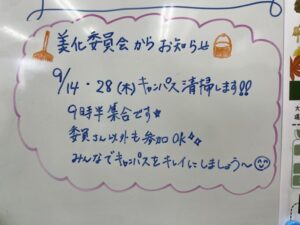 美化委員会からお知らせ
9/14・28(木)キャンパス清掃します!!
9時半集合です☆
委員さん以外も参加OK☆☆
みんなでキャンパスをキレイにしましょう〜